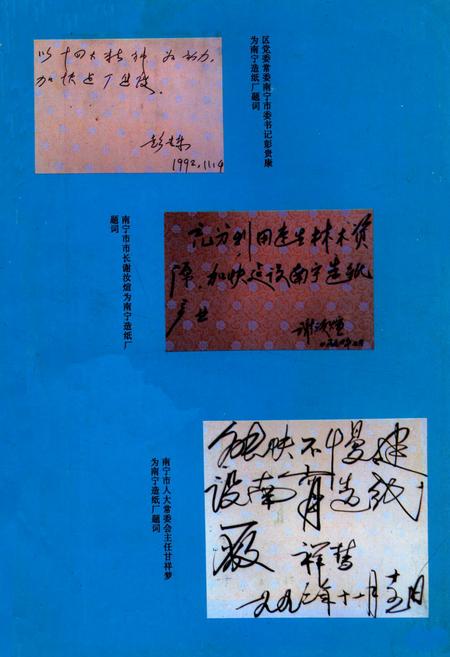 以十四大精神为动力,
加快建厂进度.
彭贵康
1992.11.9
区党委常委南宁市委书记彭贵康
为南宁造纸厂题词
充分利用速生林木资
源,加快建设南宁造纸
产业
谢汝煊
南宁市市长谢汝煊为南宁造纸厂
题词
能快不慢建
设南宁造纸
厰
祥梦
一九九二年十一月
南宁市人大常委会主任甘祥梦
为南宁造纸厂题词